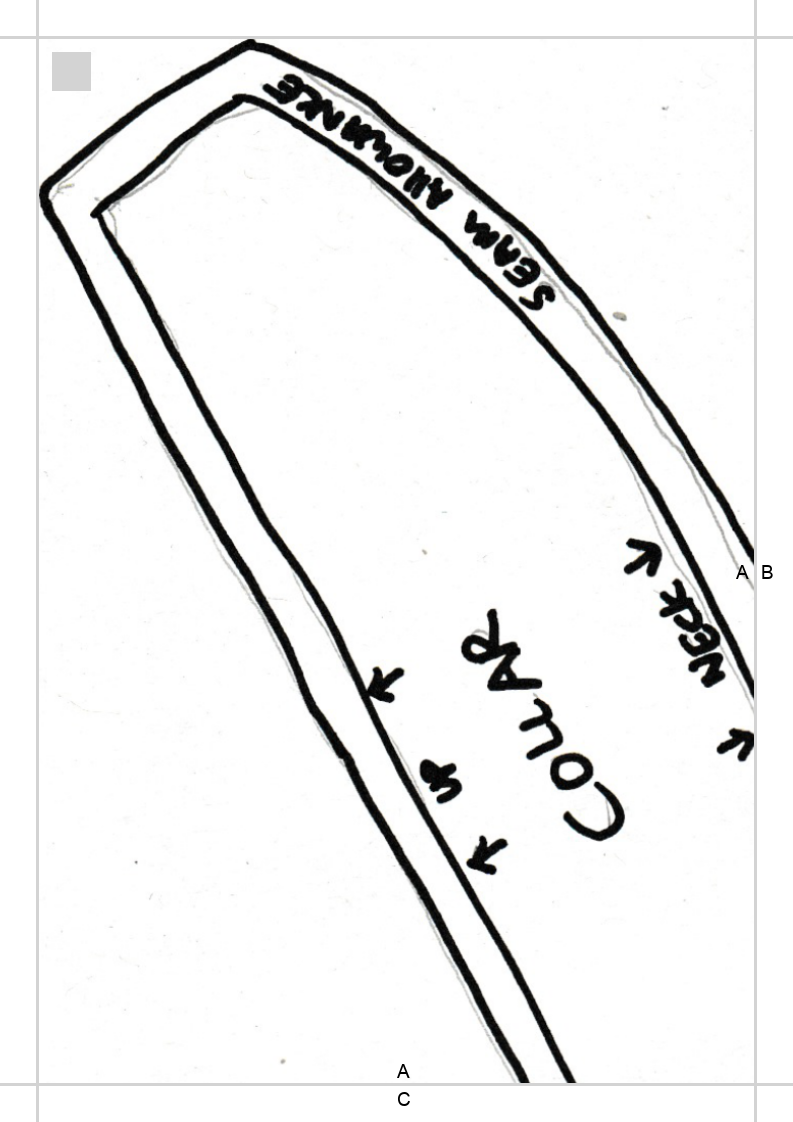 SEAM ALLOWANCE
NECK
COLLAR
UP
A B
A
C